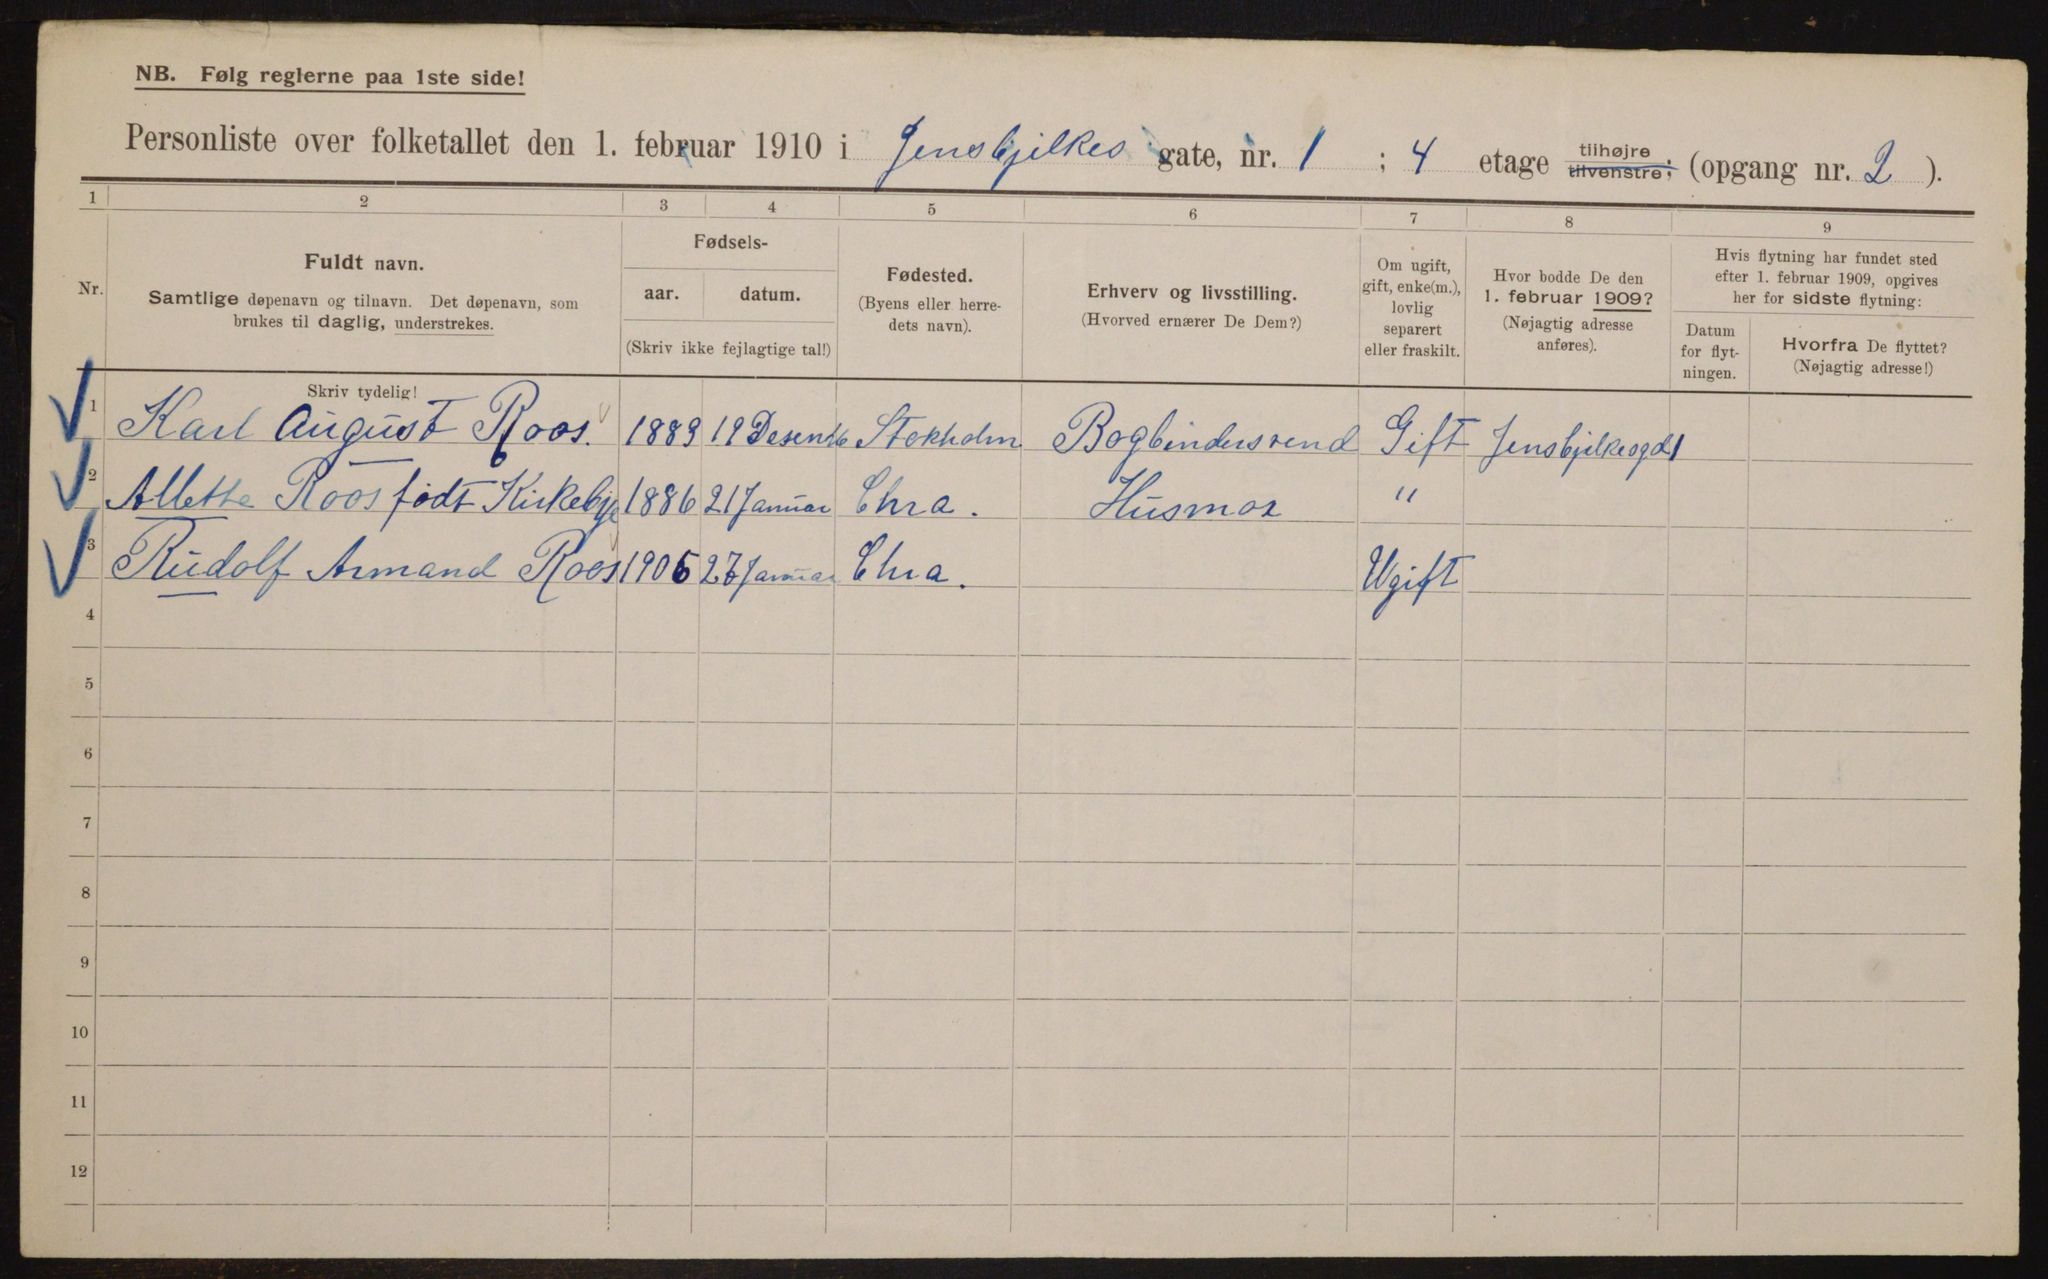 NB. Følg reglerne paa 1ste side!
Personliste over folketallet den 1. februar 1910 i Jensbjelkes gate, nr. 1 ; 4 etage tilhøjre, tilvenstre, (opgang nr. 2 ).
1 2 3 4 5 6 7 8 9
Nr.
Fuldt navn.
Samtlige døpenavn og tilnavn. Det døpenavn, som
brukes til daglig, understrekes.
Skriv tydelig!
Fødsels-
aar. datum.
(Skriv ikke fejlagtige tal!)
Fødested.
(Byens eller herre-
dets navn).
Erhverv og livsstilling.
(Hvorved ernærer De Dem?)
Om ugift,
gift, enke(m.),
lovlig
separert
eller fraskilt.
Hvor bodde De den
1. februar 1909?
(Nøjagtig adresse
anføres).
Hvis flytning har fundet sted
efter 1. februar 1909, opgives
her for sidste flytning:
Datum
for flyt-
ningen.
Hvorfra De flyttet?
(Nøjagtig adresse!)
1 Karl August Roos. 1889 19 Stokholm Gift
2 Allette Roos født 1886 21 Januar Chra. Husmor "
3 Rudolf Armand Roos Januar Chra. Ugift
4
5
6
7
8
9
10
11
12